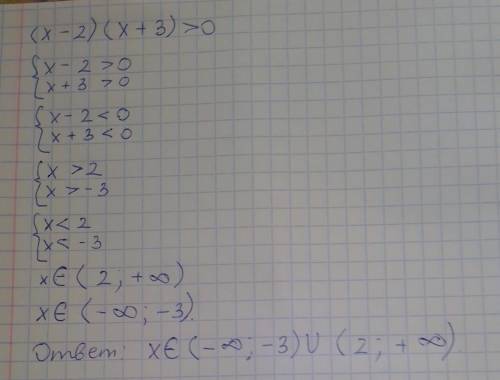 (x-2)(x+3)>0
{x-2>0
{x+3>0
{x-2<0
{x+3<0
{x>2
{x>-3
{x<2
{x<-3
x∈(2;+∞)
x∈(-∞;-3).
Ответ: x∈(-∞;-3)∪(2;+∞)